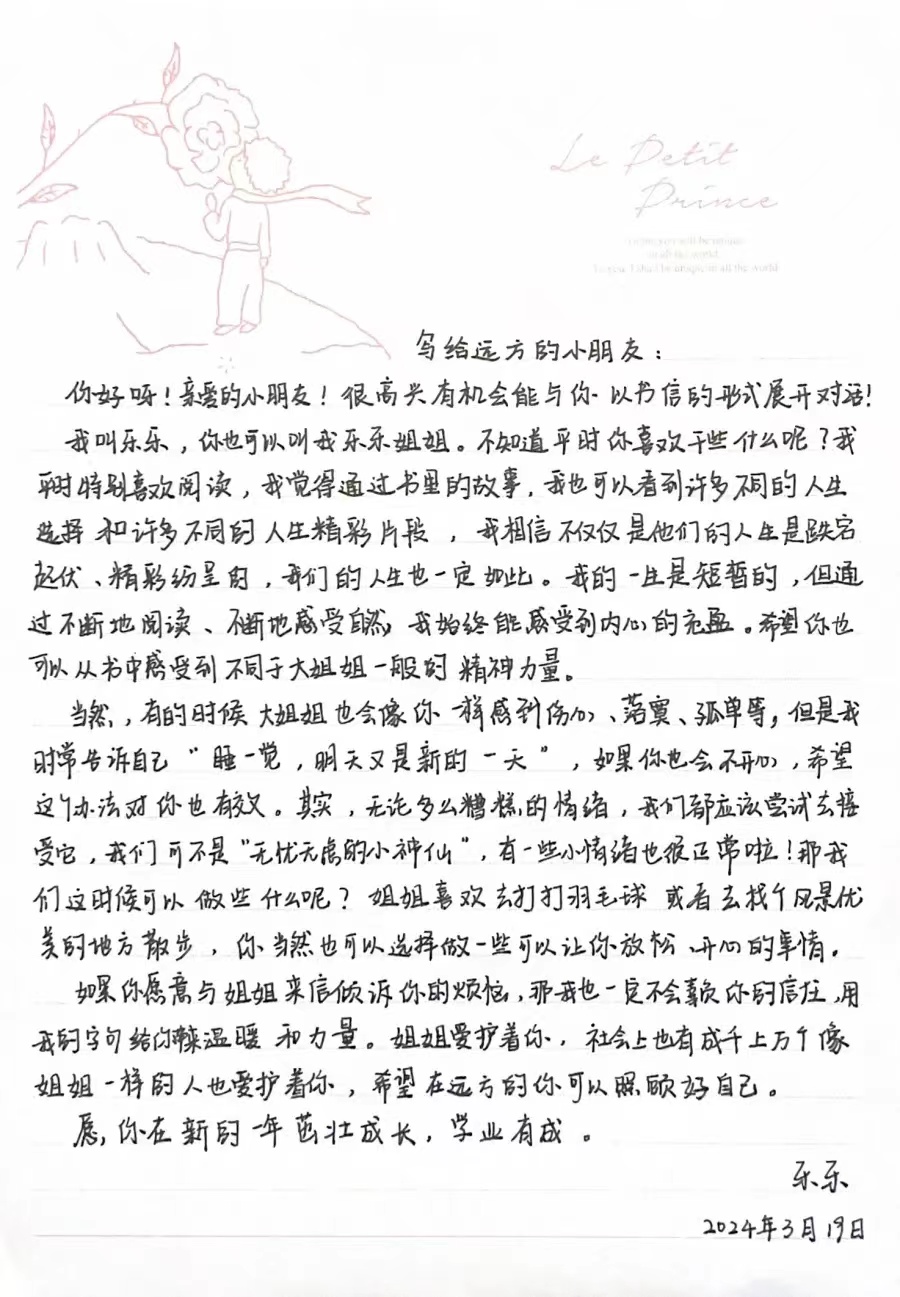 Le Petit
Prince
in all the world.
To you, I shall be unique in all the world
写给远方的小朋友：
你好呀！亲爱的小朋友！很高兴有机会能与你以书信的形式展开对话！
我叫乐乐，你也可以叫我乐乐姐姐。不知道平时你喜欢干些什么呢？我
平时特别喜欢阅读，我觉得通过书里的故事，我也可以看到许多不同的人生
选择和许多不同的人生精彩片段，我相信不仅仅是他们的人生是跌宕
起伏、精彩纷呈的，我们的人生也一定如此。我的一生是短暂的，但通
过不断地阅读、不断地感受自然，我始终能感受到内心的充盈。希望你也
可以从书中感受到不同于大姐姐一般的精神力量。
当然，有的时候大姐姐也会像你一样感到伤心、落寞、孤单等，但是我
时常告诉自己“睡一觉，明天又是新的一天”，如果你也会不开心，希望
这个办法对你也有效。其实，无论多么糟糕的情绪，我们都应该尝试去接
受它，我们可不是“无忧无虑的小神仙”，有一些小情绪也很正常啦！那我
们这时候可以做些什么呢？姐姐喜欢去打打羽毛球或者去找个风景优
美的地方散步，你当然也可以选择做一些可以让你放松、开心的事情。
如果你愿意与姐姐来信倾诉你的烦恼，那我也一定不会辜负你的信任，用
我的字句给你带来温暖和力量。姐姐爱护着你，社会上也有成千上万个像
姐姐一样的人也爱护着你，希望在远方的你可以照顾好自己。
愿，你在新的一年茁壮成长，学业有成。
乐乐
2024年3月19日